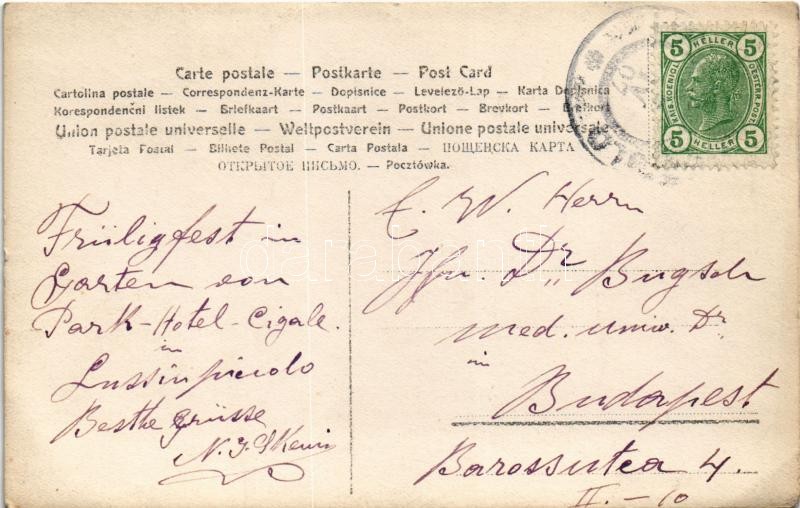 Carte postale — Postkarte — Post Card
Cartolina postale — Correspondenz-Karte — Dopisnice — Levelező-Lap — Karta Dopisnica
Korespondenční listek — Briefkaart — Postkaart — Postkort — Brevkort — Brefkort
Union postale universelle — Weltpostverein — Unione postale universale
Tarjeta Postal — Bilhete Postal — Carta Postala — ПОЩЕНСКА КАРТА
ОТКРЫТОЕ ПИСЬМО. — Pocztówka.
5 HELLER 5
KAIS. KOENIGL. OESTERR. POST
5 HELLER 5
Früligfest in
Garten von
Park-Hotel-Cigale.
in
Lussinpiccolo
Besthe grüsse
E. W. Herrn
Hrn. Dr. Bugsch
med. univ. Dr
in
Budapest
Barossutca 4.
II. - 10
darabanth